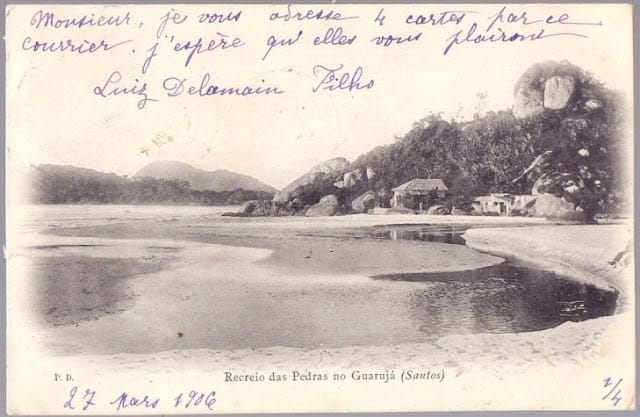 Monsieur, je vous adresse 4 cartes par ce
courrier. j'espère qu'elles vous plairont
Luiz Delamain Filho
P. D.
Recreio das Pedras no Guarujá (Santos)
27 Mars 1906
1/4